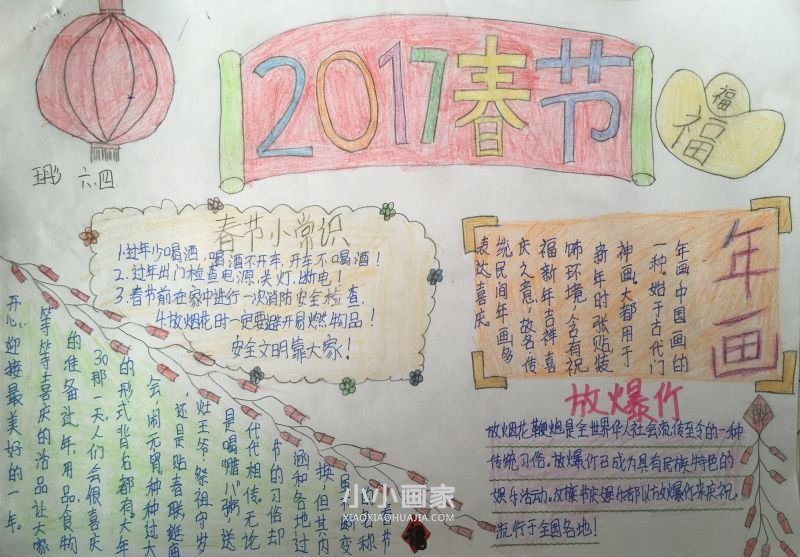 2017春节
福
福
六.四
春节小常识
1.过年少喝酒,喝酒不开车,开车不喝酒!
2.过年出门检查电源,关灯.断电!
3.春节前在家中进行一次消防安全检查.
4.放烟花时一定要避开易燃物品!
安全文明靠大家!
年画
年画中国画的
一种。始于古代门
神画。大都用于
新年时张贴装
饰环境,含有祝
福新年吉祥喜
庆之意,故名传
统民间年画多
表达喜庆。
放爆竹
放烟花鞭炮是全世界华人社会流传至今的一种
传统习俗.放爆竹已成为具有民族特色的
娱乐活动.
庆娱乐都以放爆竹来庆祝.
流行于全国各地!
春节
换但其内
涵和各地过
节的习俗却
代代相传.无论
是喝"腊八"粥,送
灶王爷.祭祖守岁
,还是贴春联逛庙
会闹元宵种种过大
的形式皆名都有大年
30那一天人们会很喜庆
的准备过年用品食物
等等喜庆的活品让大家
开心迎接最美好的一年。
小小画家
XIAOXIAOHUAJIA.COM